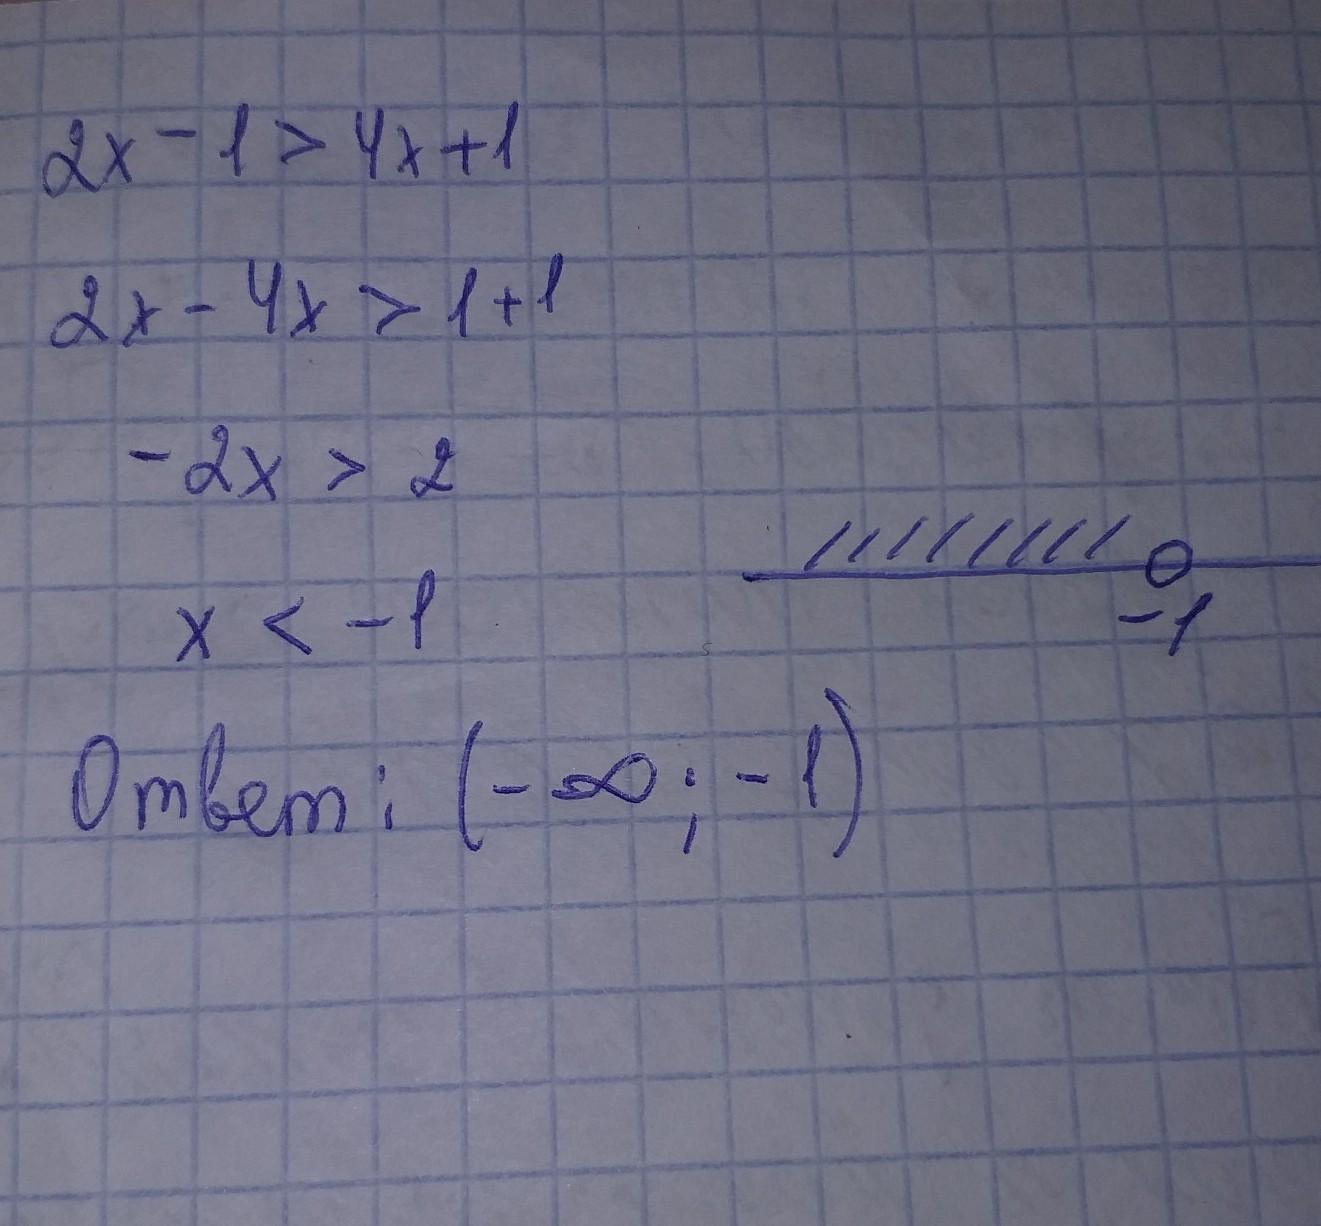 2x - 1 > 4x + 1
2x - 4x > 1 + 1
-2x > 2
x < -1
-1
Ответ: (-∞; -1)